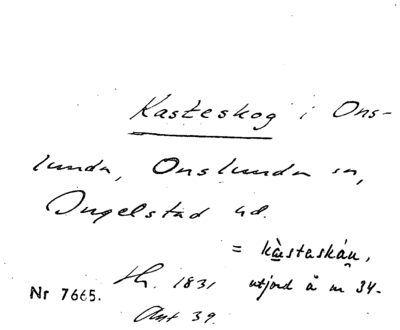 Kasteskog i Ons-
lunda, Onslunda sn,
Ingelstad hd.
= kàstaskáu,
Nr 7665. Th. 1831 utjord å nr 34.
Ant 39.